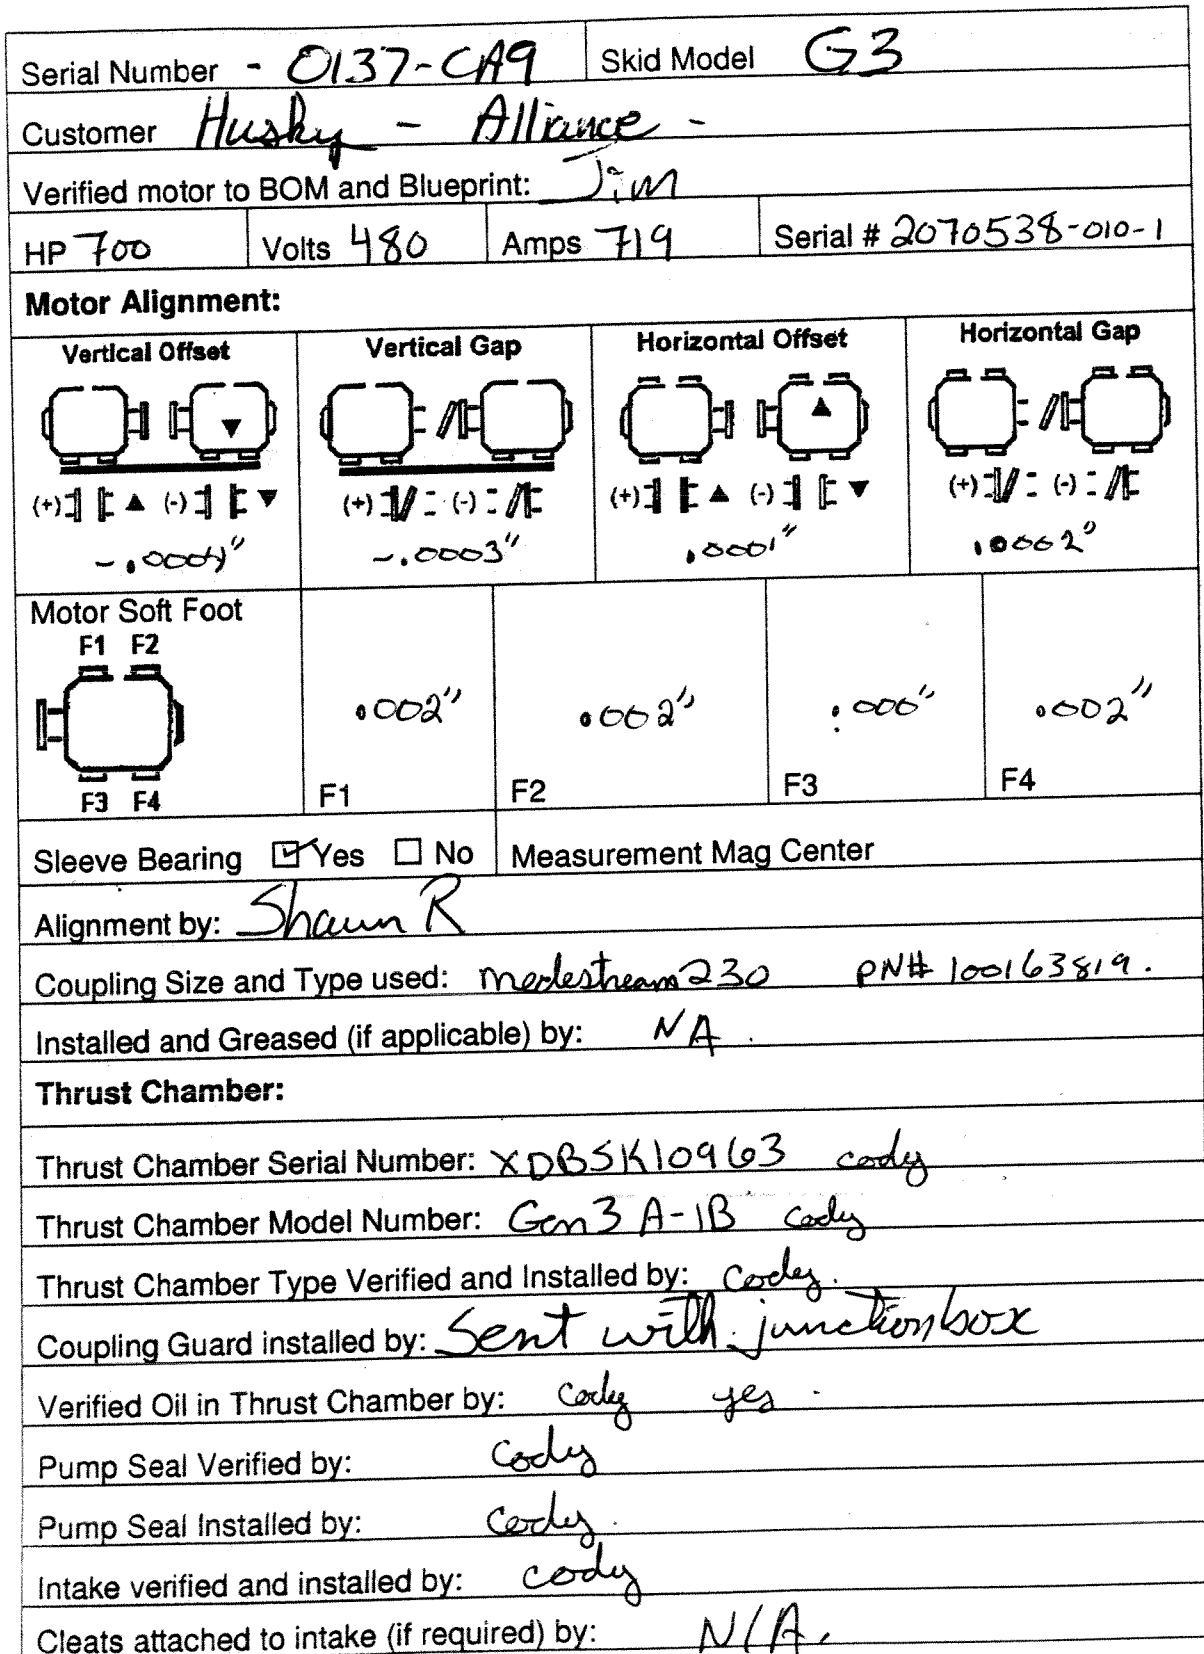 Serial Number - 0137-CA9 Skid Model G3
Customer Husky - Alliance -
Verified motor to BOM and Blueprint: Jim
HP 700 Volts 480 Amps 719 Serial # 2070538-010-1
Motor Alignment:
Vertical Offset Vertical Gap Horizontal Offset Horizontal Gap
(+) (-) (+) (-) (+) (-) (+) (-)
-.0004" -.0003" .0001" .0002"
Motor Soft Foot
F1 F2
.002" .002" .000" .002"
F3 F4
F1 F2 F3 F4
Sleeve Bearing Yes No Measurement Mag Center
Alignment by: Shaun R
Coupling Size and Type used: medestream 230 PN# 100163819.
Installed and Greased (if applicable) by: NA.
Thrust Chamber:
Thrust Chamber Serial Number: XDBSK10963 cody
Thrust Chamber Model Number: Gen3 A-1B cody
Thrust Chamber Type Verified and Installed by: cody.
Coupling Guard installed by: Sent with junction box
Verified Oil in Thrust Chamber by: cody yes.
Pump Seal Verified by: cody
Pump Seal Installed by: cody.
Intake verified and installed by: cody
Cleats attached to intake (if required) by: N/A.